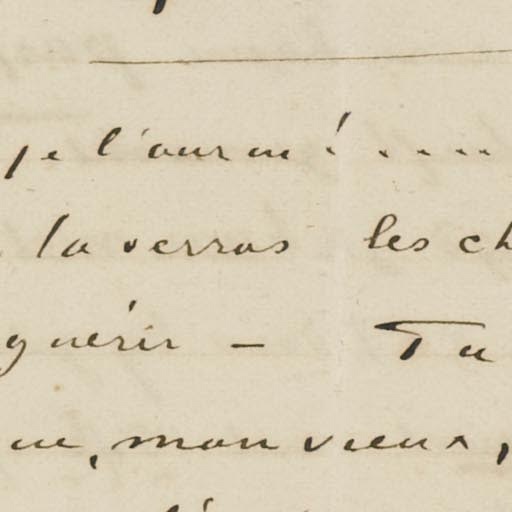 je l'aurai ! ....
la verras les ch
guérir — Tu
mon vieux,